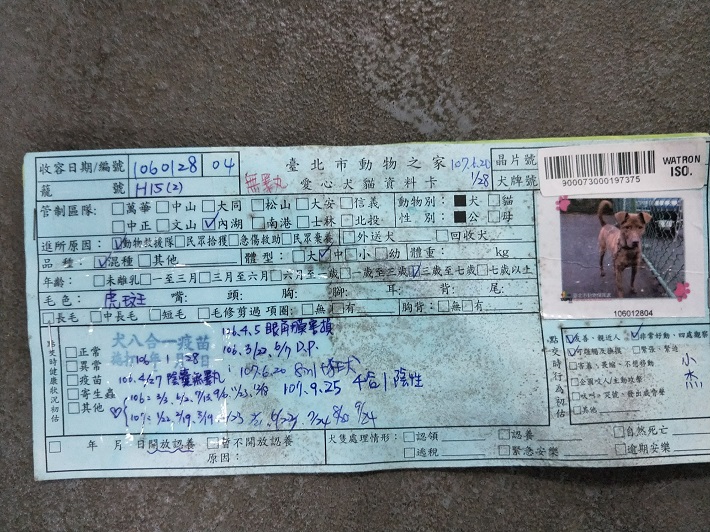 收容日期/編號 1060128 04 臺北市動物之家 107.6.20 晶片號
籠 號 H15(2) 無睪丸 愛心犬貓資料卡 1/28 犬牌號
900073000197375
WATRON
ISO.
管制區隊:□萬華□中山□大同□松山□大安□信義 動物別:■犬□貓
□中正□文山☑內湖□南港□士林□北投 性 別:■公□母
進所原因:☑動物救援隊□民眾拾獲□急傷救助□民眾棄養 □外送犬 □回收犬
品 種:☑混種□其他 體 型:□大☑中□小□幼 體重: kg
年齡:□未離乳□一至三月□三月至六月□六月至一歲□一歲至三歲☑三歲至七歲□七歲以上
毛色:虎斑 嘴: 頭: 胸: 腳: 耳: 背: 尾:
□長毛 □中長毛 □短毛 □毛修剪過 項圈:□無□有 胸背:□無□有
106012804
非交時健康狀況初估
□正常
□異常
□疫苗
□寄生蟲
□其他
犬八合一疫苗
106年1月28日
106.4.5
106.3/22, 6/7 D.P.
106.4/27 陰囊無睪丸
107.6.20 8in1 狂犬
107.9.25 4合1陰性
點交時行為初估
☑友善、親近人 ☑非常好動、四處觀察
☑可碰觸及撫摸 □緊張、緊迫
□害羞、畏縮、不思移動
□企圖咬人/主動攻擊
□吠叫、哭號、發出威脅聲
□其他
小杰
□ 年 月 日開放認養 □暫不開放認養
原因:
犬隻處理情形:□認領 □認養 □自然死亡
□逃脫 □緊急安樂 □逾期安樂